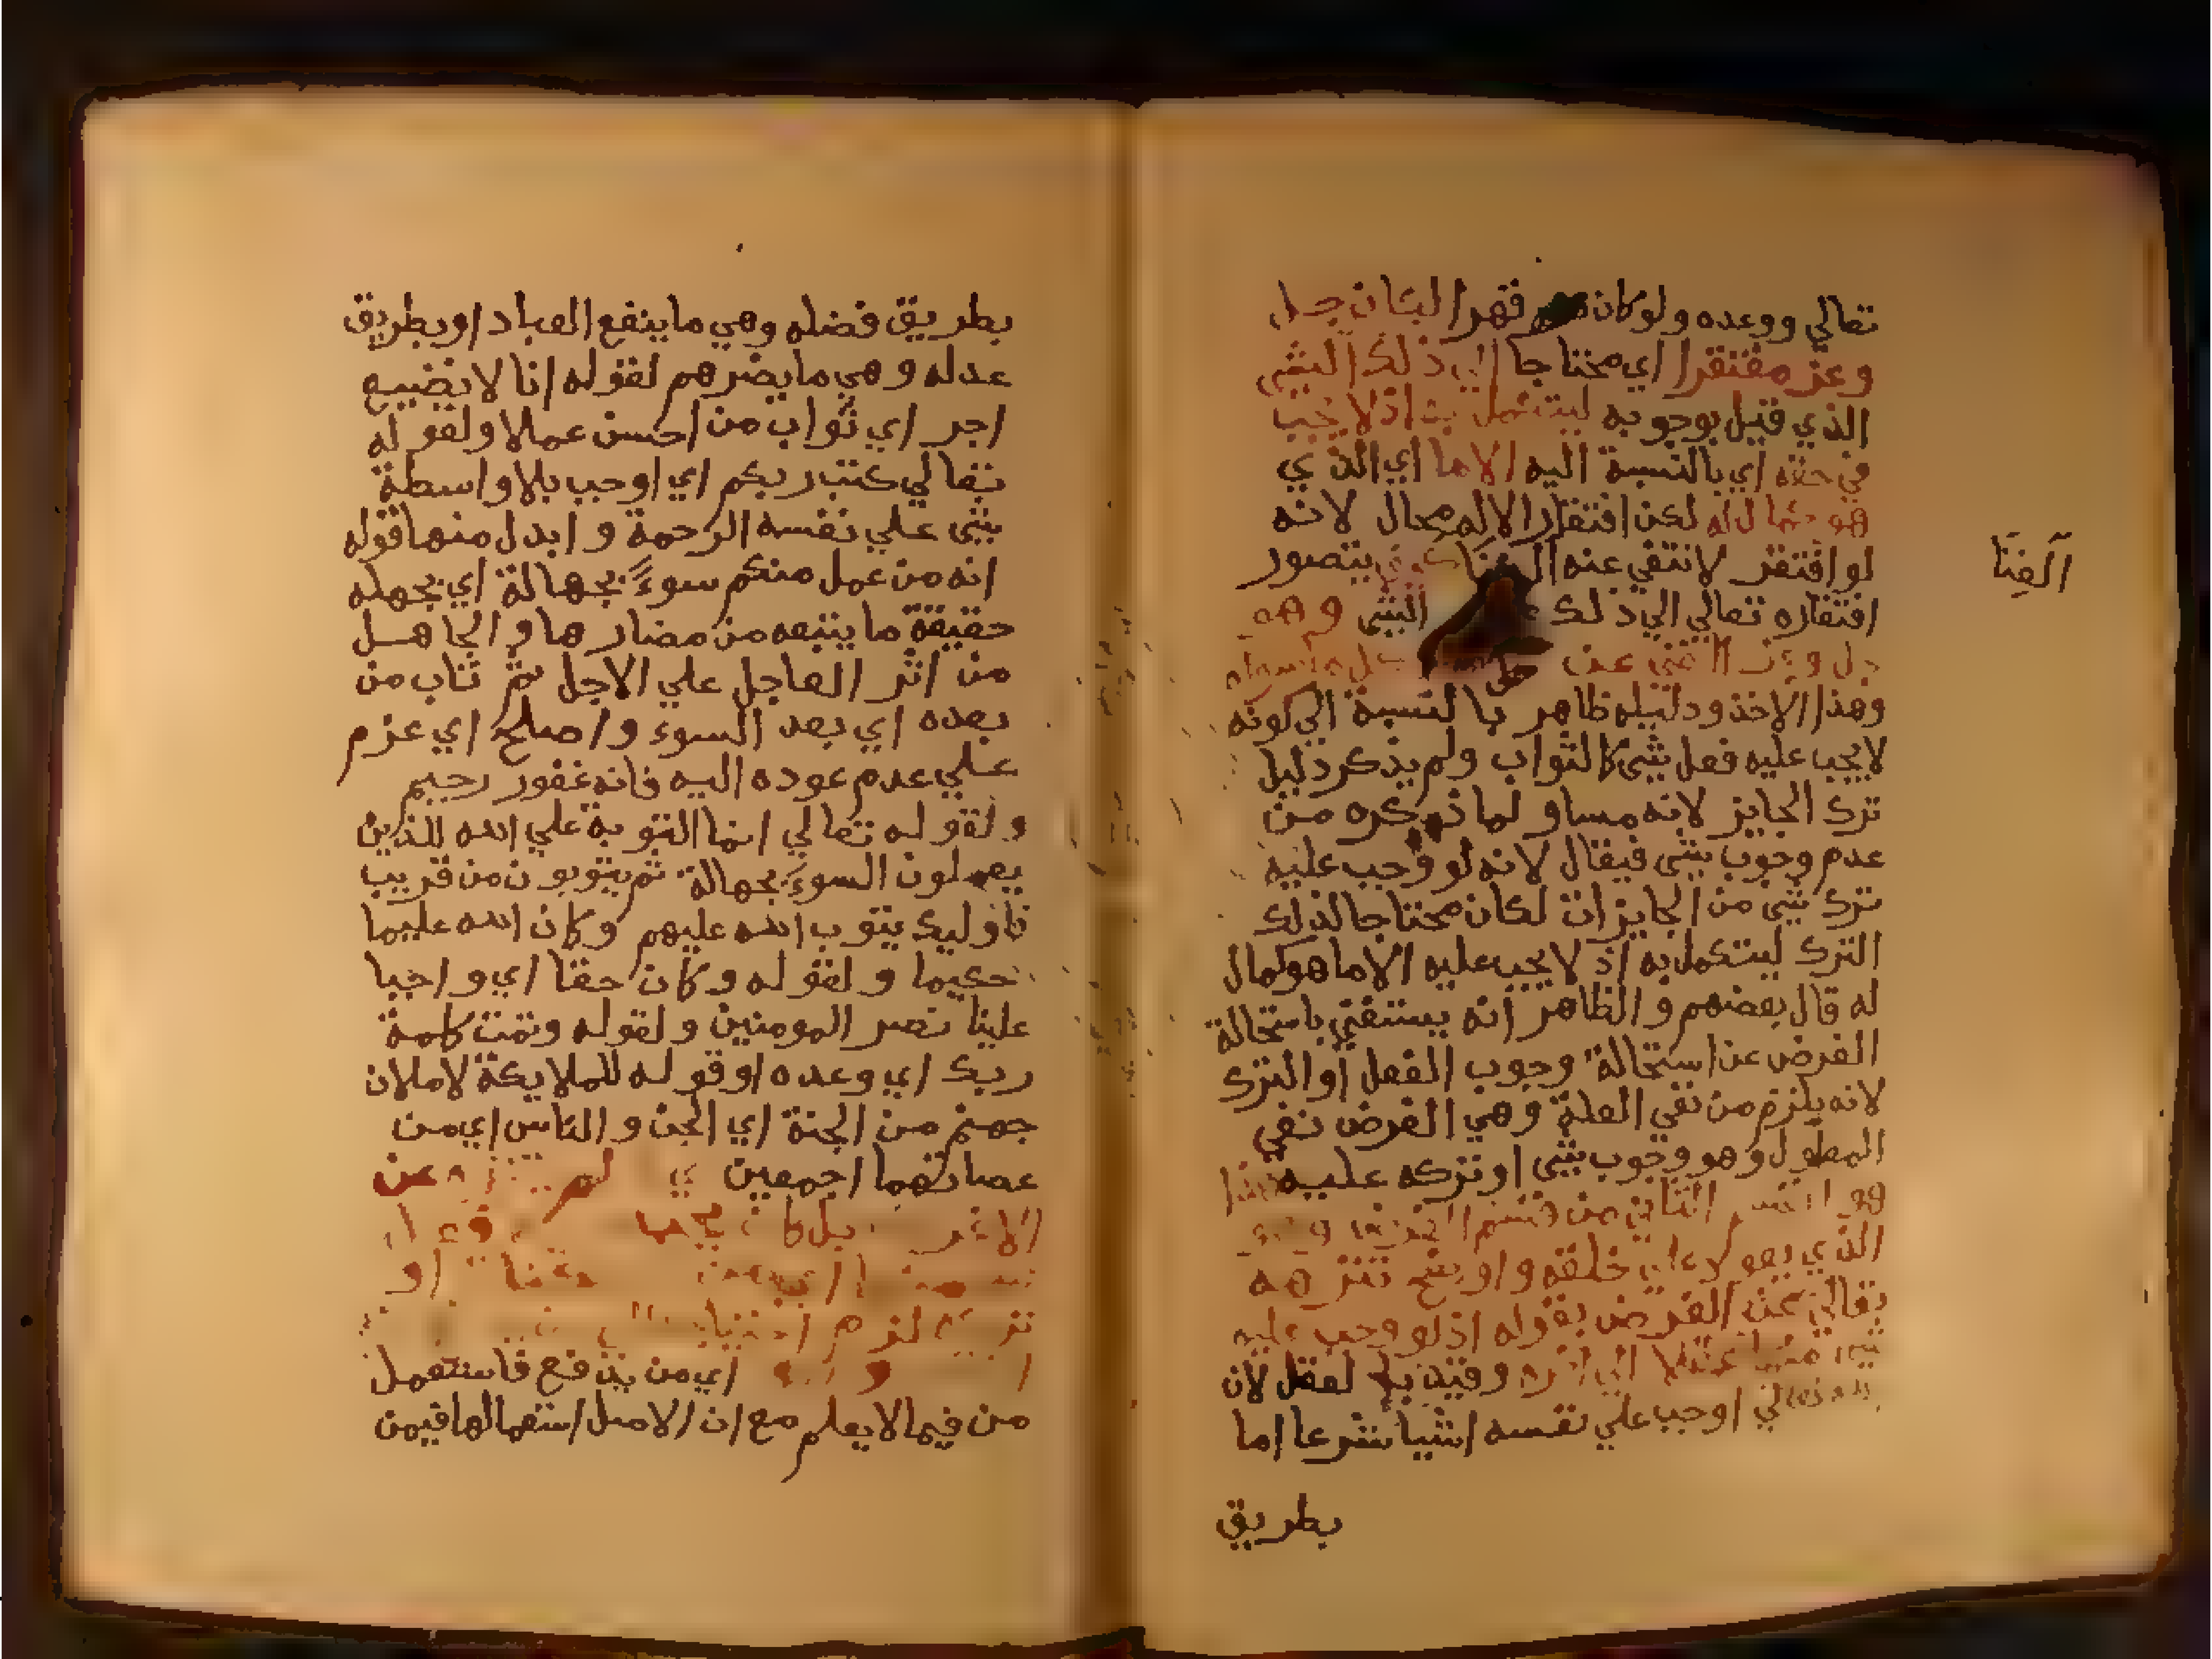 تعالي ووعده ولو كان قهرا لكان جل
وعز مفتقرا اي محتاجا الي ذلك الشي
الذي قيل بوجوبه ليتكمل به اذ لا يجب
في حقه اي بالنسبة اليه الا ما اي الذي
هو كمال له لكن افتقار الاله محال لانه
لو افتقر لانتفي عنه الغنا يتصور
الغنا
افتقاره تعالي الي ذلك الشي وهو
جل وعز الغني عن كل ما سواه
وهذا الاخذ ودليله ظاهر بالنسبة الي كونه
لا يجب عليه فعل شي كالثواب ولم يذكر دليل
ترك الجايز لانه مساو لما ذكره من
عدم وجوب شي فيقال لانه لو وجب عليه
ترك شي من الجايزات لكان محتاجا لذلك
الترك ليتكمل به اذ لا يجب عليه الا ما هو كمال
له قال بعضهم والظاهر انه يستغني باستحالة
الغرض عن استحالة وجوب الفعل او الترك
لانه يلزم من نفي العلة وهي الغرض نفي
المعلول وهو وجوب شي او تركه عليه
هو القسم الثاني من قسم
الذي يعود علي خلقه واوضح تنزهه
تعالي عن الغرض بقوله اذ لو وجب عليه
شي منها عقلا الي اخره وقيد بالعقل لان
الله تعالي اوجب علي نفسه اشيا شرعا اما
بطريق
بطريق فضله وهي ما ينفع العباد او بطريق
عدله وهي ما يضرهم لقوله انا لا نضيع
اجر اي ثواب من احسن عملا ولقوله
تعالي كتب ربكم اي اوجب بلا واسطة
شي علي نفسه الرحمة وابدل منها قوله
انه من عمل منكم سوءً بجهالة اي بجهله
حقيقة ما يتبعه من مضارها والجاهل
من اثر العاجل علي الاجل ثم تاب من
بعده اي بعد السوء واصلح اي عزم
علي عدم عوده اليه فانه غفور رحيم
ولقوله تعالي انما التوبة علي الله للذين
يعملون السوءَ بجهالة ثم يتوبون من قريب
فاوليك يتوب الله عليهم وكان الله عليما
حكيما ولقوله وكان حقا اي واجبا
علينا نصر المومنين ولقوله وتمت كلمة
ربك اي وعده او قوله للملايكة لاملان
جهنم من الجنة اي الجن والناس اي من
عصاتهما اجمعين لم عن
بل كان يجب
او
لزم
اي من يندفع فاستعمل
من فيما لا يعلم مع ان الاصل استعمالها فيمن